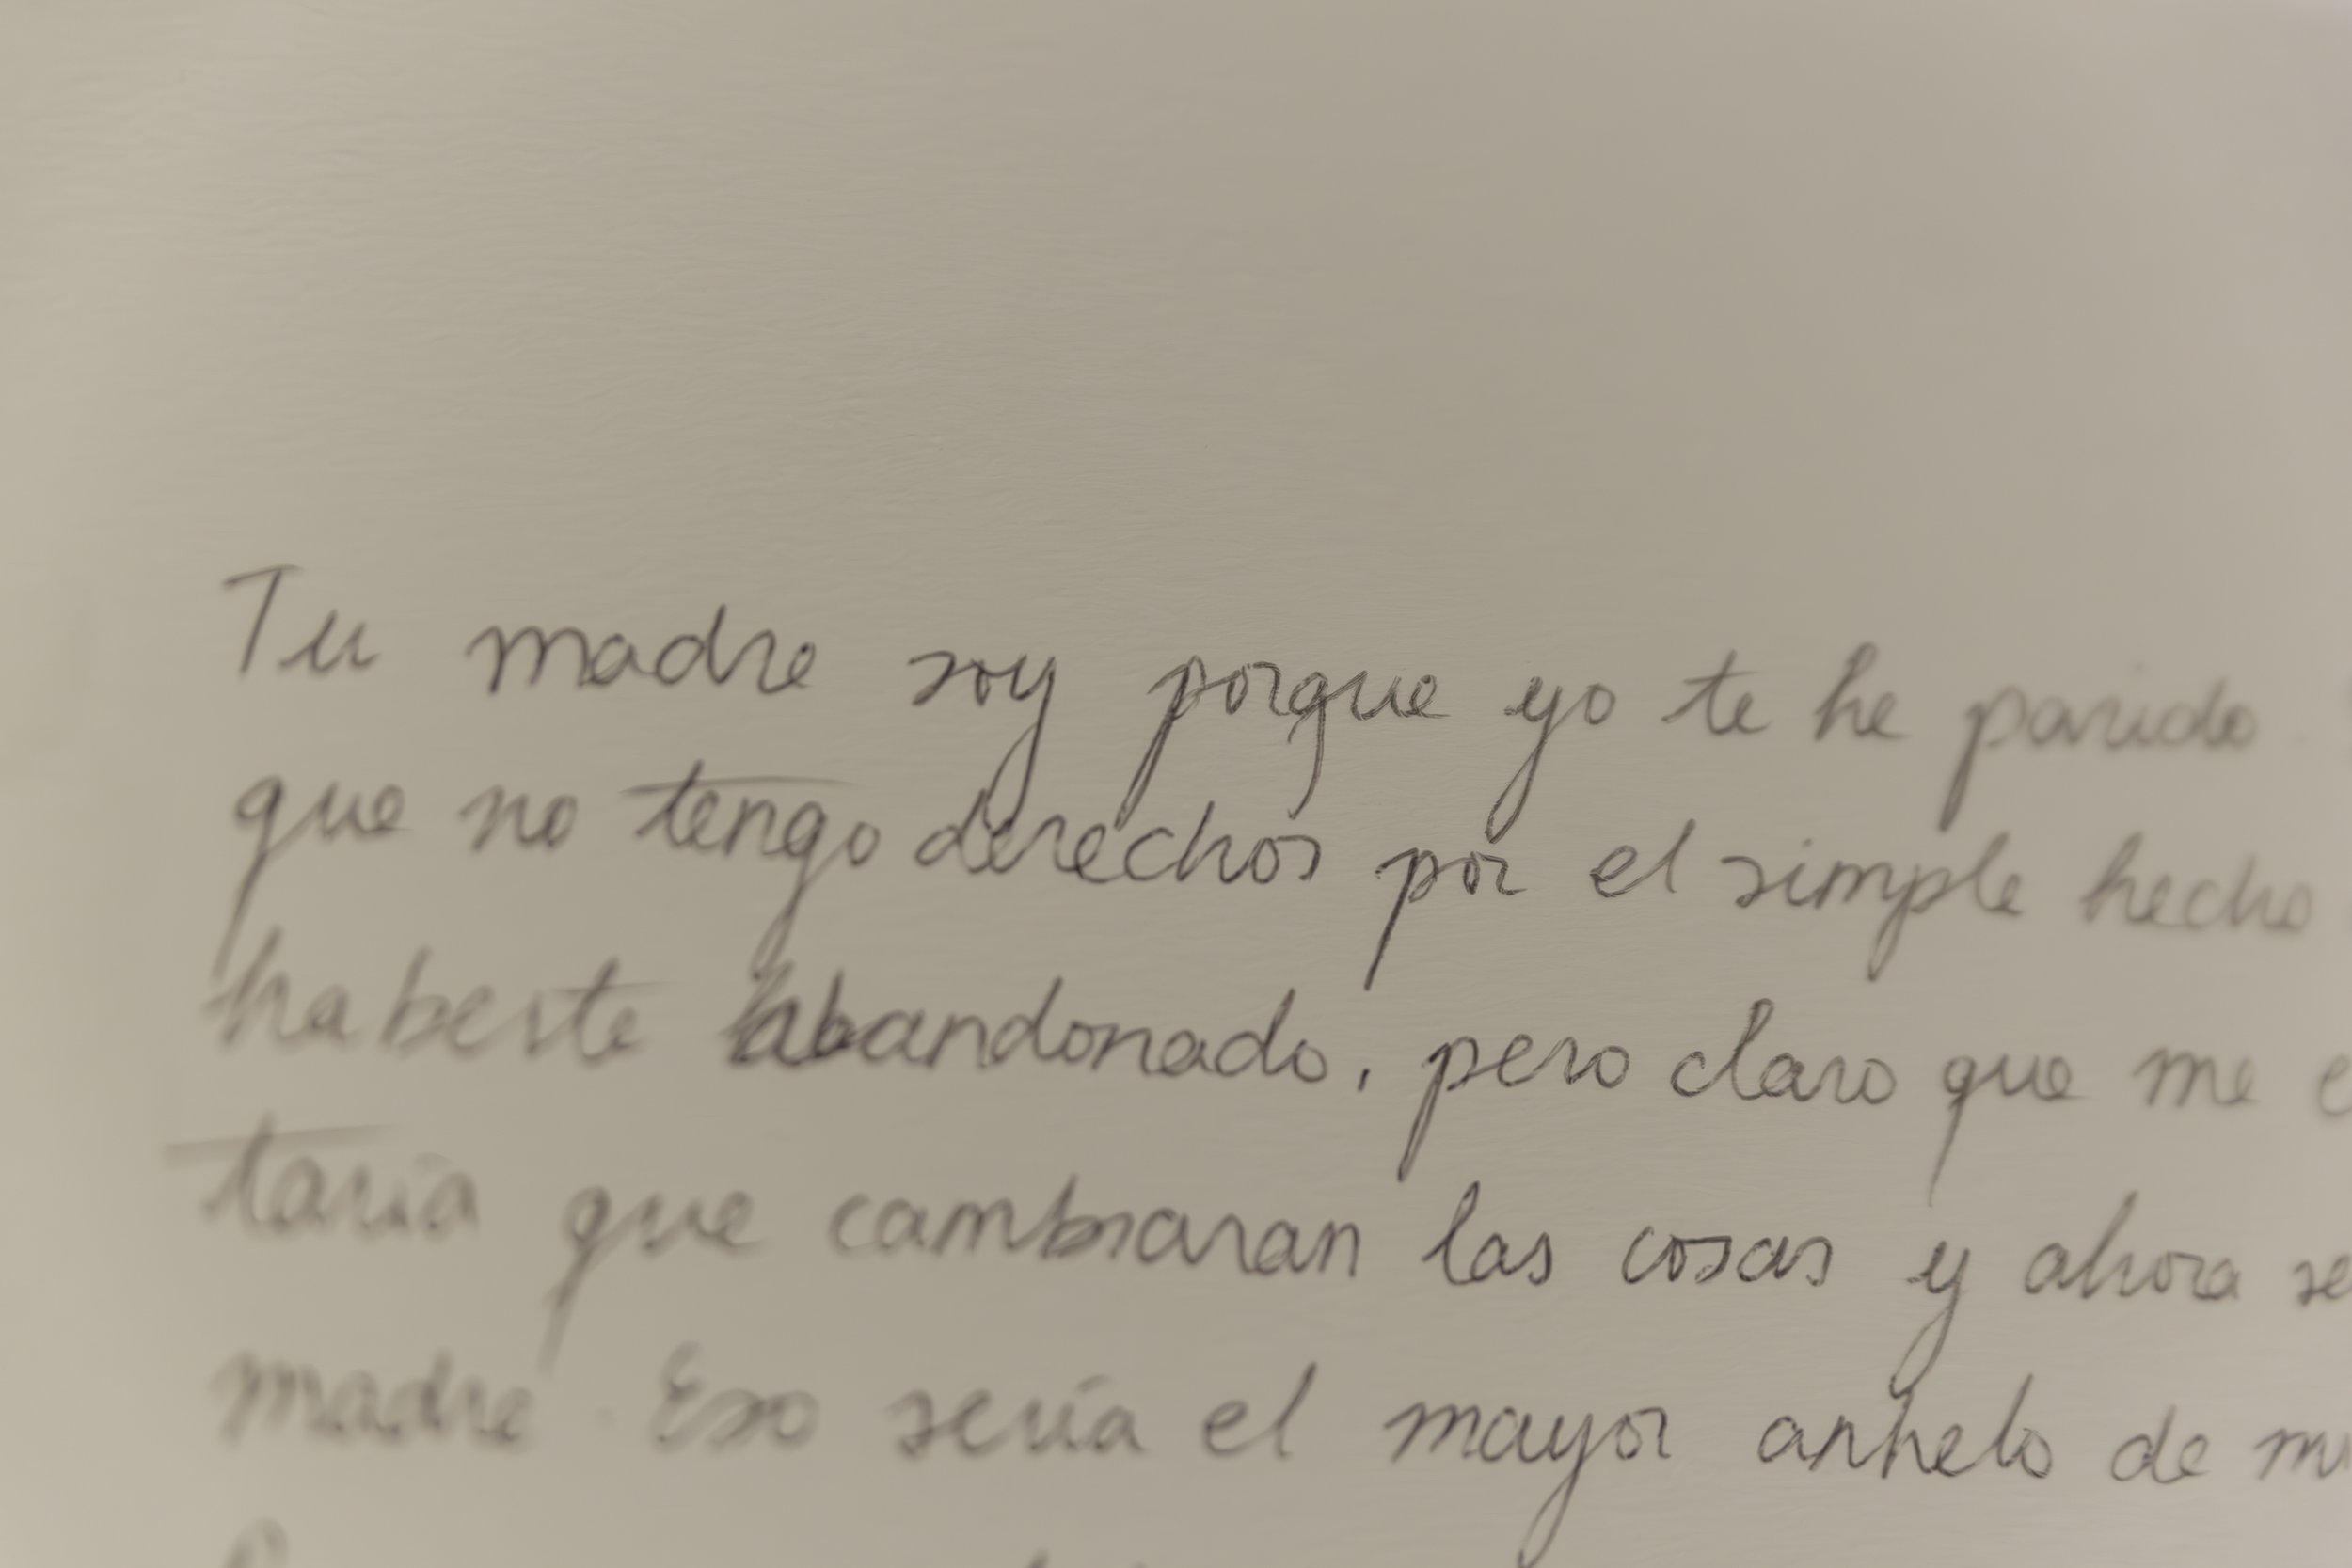 Tu madre soy porque yo te he parido.
que no tengo derechos por el simple hecho
haberte abandonado, pero claro que me
taría que cambiaran las cosas y ahora
madre. Eso sería el mayor anhelo de